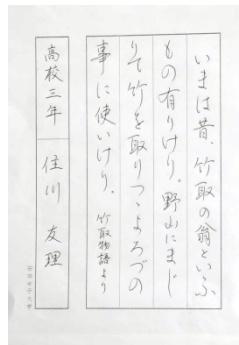 いまは昔、竹取の翁といふ
もの有りけり。野山にまじ
りて竹を取りつゝよろづの
事に使いけり。 竹取物語より
高校三年 住川 友理